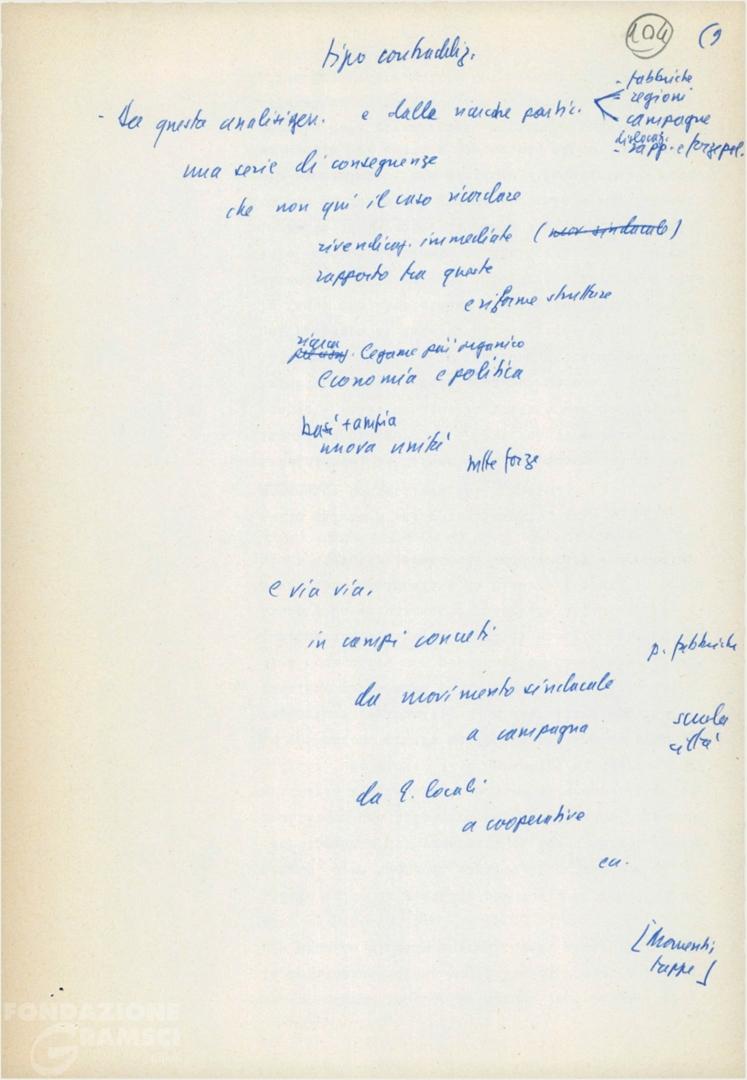 104 (9
tipo contraddiz.
- Da questa analisi gen. e dalle ricerche partic.
- fabbriche
- regioni
- campagne
dislocaz.
- rapp. e forze pol.
una serie di conseguenze
che non qui il caso ricordare
rivendicaz. immediate (nuov sindacato)
rapporto tra queste
e riforme strutture
legame più organico
economia e politica
basi + ampia
nuova unità
tutte forze
e via via.
in campi concreti
p. fabbriche
da movimento sindacale
a campagna
scuola
città
da E. locali
a cooperative
ecc.
[Momenti,
tappe]
FONDAZIONE
GRAMSCI